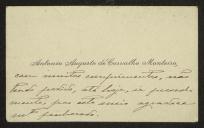 Antonio Augusto de Carvalho Monteiro,
com muitos cumprimentos, não
tendo podido, até hoje, ir pessoal-
mente, por este meio agradece
m.to penhorado.